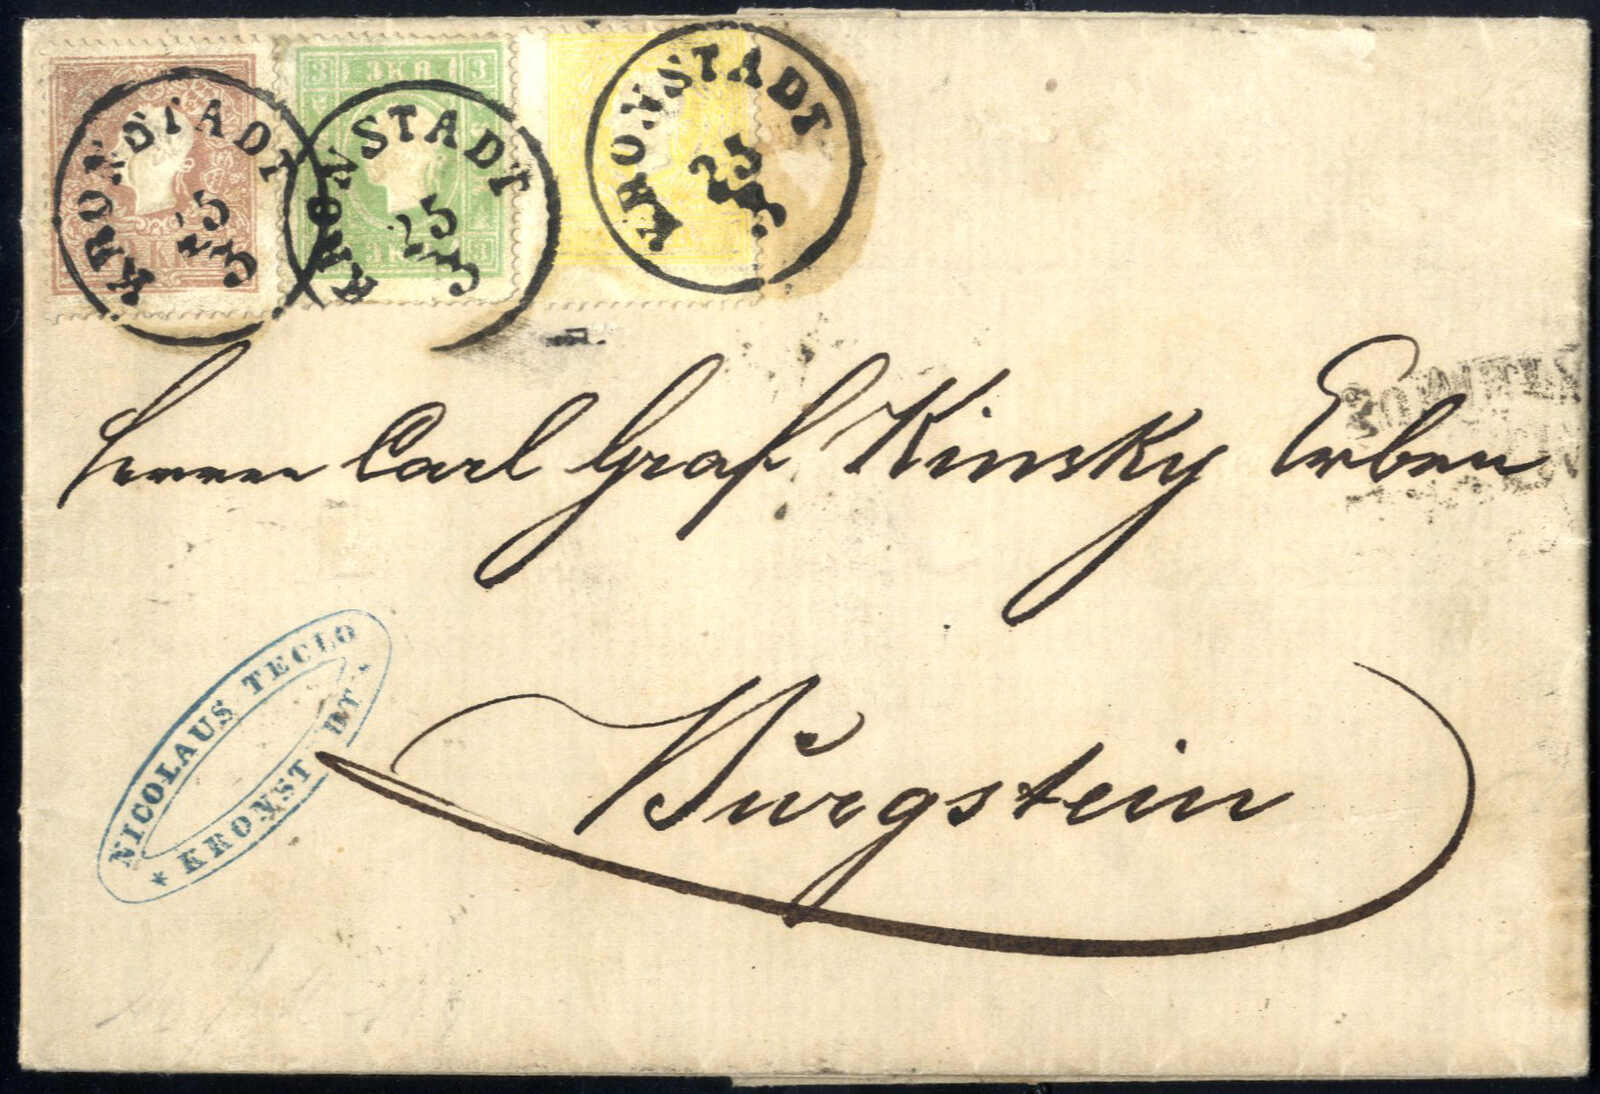 KRONSTADT
25
3
KRONSTADT
25
3
KRONSTADT
25
3
3 3KR 3
3 3KR 3
Herren Carl Graf Kinsky Erben
Burgstein
NICOLAUS TECLO
* KRONST DT *